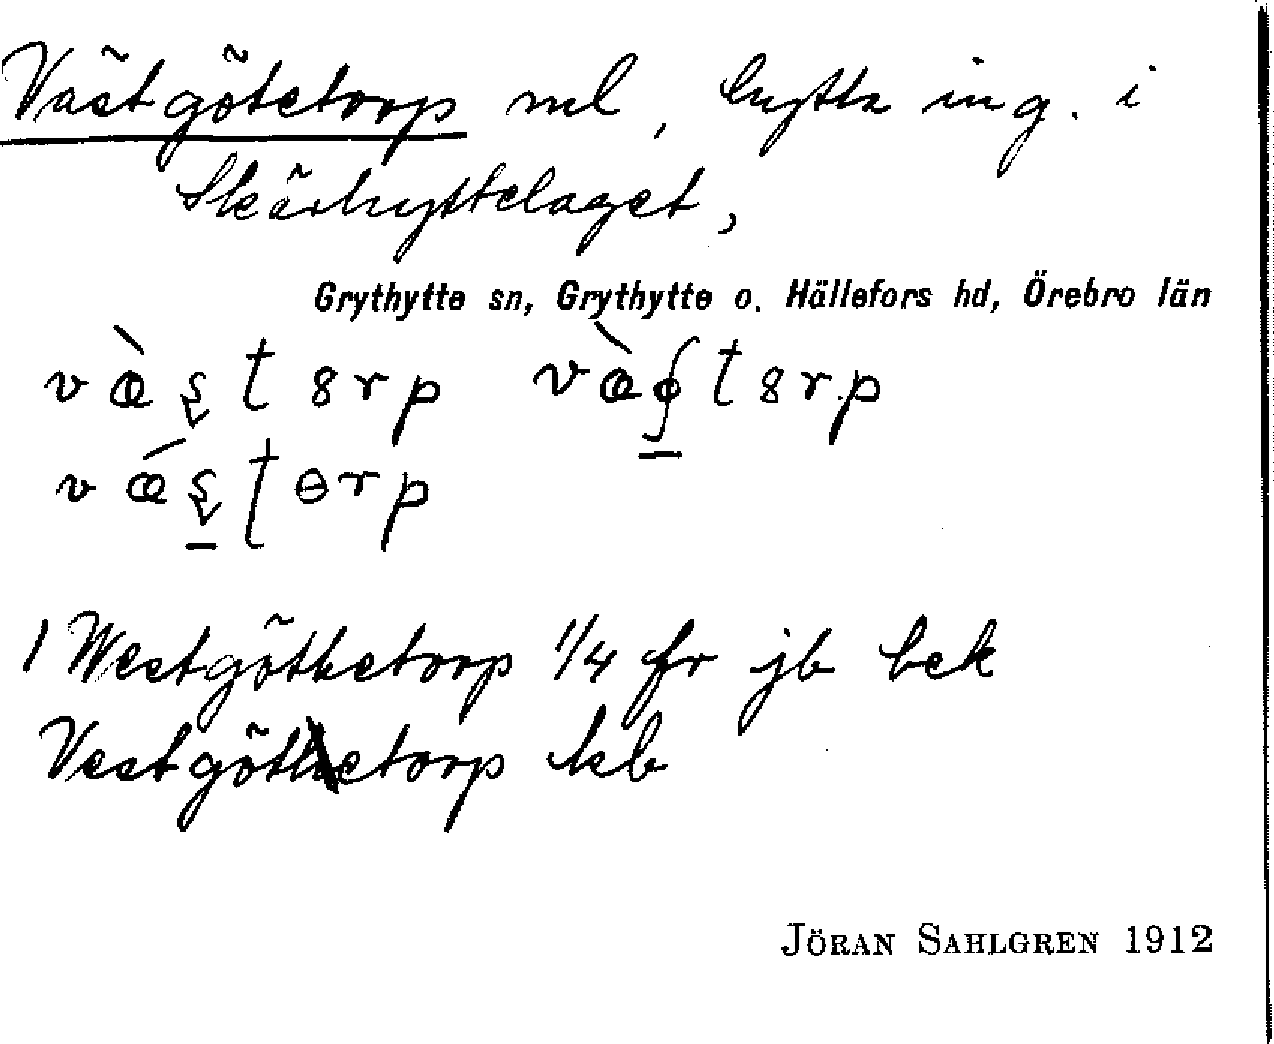 Västgötetorp ml, hytta ing. i
Skärhyttelaget,
Grythytte sn, Grythytte o. Hällefors hd, Örebro län
1 Westgöthetorp 1/4 fr jb bek
Vestgötetorp kb
JÖRAN SAHLGREN 1912